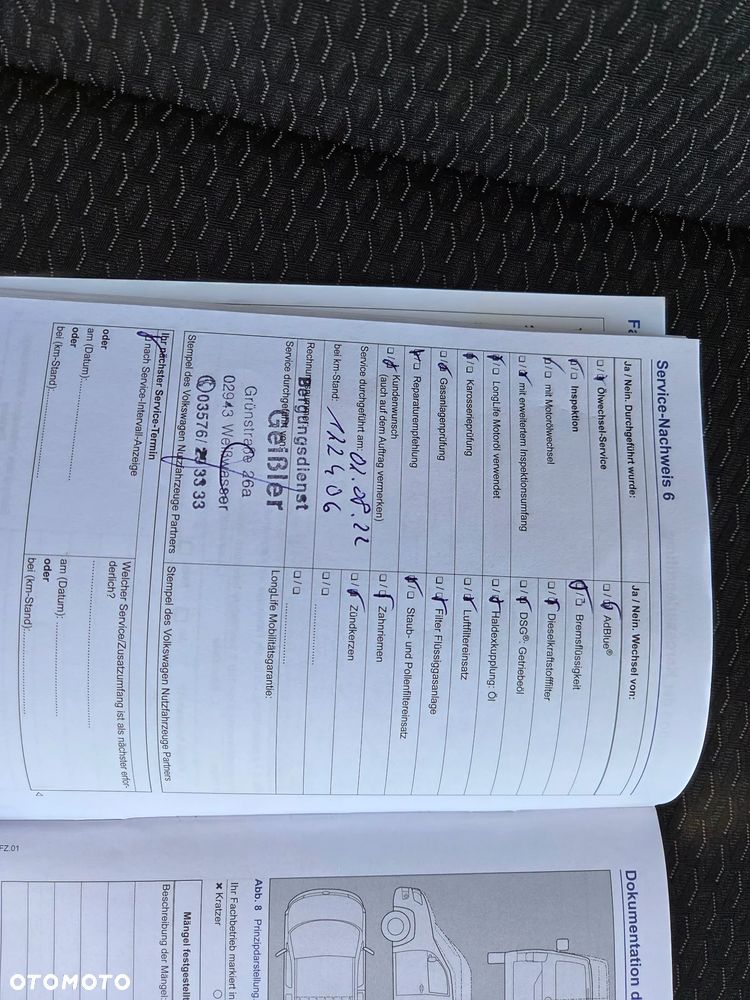 Service-Nachweis 6
Ja / Nein. Durchgeführt wurde:
□ / □ Ölwechsel-Service
□ / □ Inspektion
□ / □ mit Motorölwechsel
□ / □ mit erweitertem Inspektionsumfang
□ / □ LongLife Motoröl verwendet
□ / □ Karosserieprüfung
□ / □ Gasanlagenprüfung
□ / □ Reparaturempfehlung
□ / □ Kundenwunsch
(auch auf dem Auftrag vermerken)
Service durchgeführt am: 01.08.22
bei km-Stand: 112406
Service durchgeführt
Bergungsdienst
Geißler
Grünstraße 26a
02943 Weißwasser
03576/
33 33
Stempel des Volkswagen Nutzfahrzeuge Partners
Ja / Nein. Wechsel von:
□ / □ AdBlue®
□ / □ Bremsflüssigkeit
□ / □ Dieselkraftstofffilter
□ / □ DSG®- Getriebeöl
□ / □ Haldexkupplung: Öl
□ / □ Luftfiltereinsatz
□ / □ Filter, Flüssiggasanlage
□ / □ Staub- und Pollenfiltereinsatz
□ / □ Zahnriemen
□ / □ Zündkerzen
□ / □ ....................
□ / □ ....................
LongLife Mobilitätsgarantie:
Stempel des Volkswagen Nutzfahrzeuge Partners
Ihr nächster Service-Termin
nach Service-Intervall-Anzeige
oder
am (Datum):....................
oder
bei (km-Stand):....................
Welcher Service/Zusatzumfang ist als nächster erfor-
derlich?
....................
am (Datum): ....................
oder
bei (km-Stand):....................
Fa
FZ.01
Dokumentation d
Abb. 8 Prinzipdarstellung.
Ihr Fachbetrieb markiert in
× Kratzer
Mängel festgestellt
Beschreibung der Mängel:
OTOMOTO